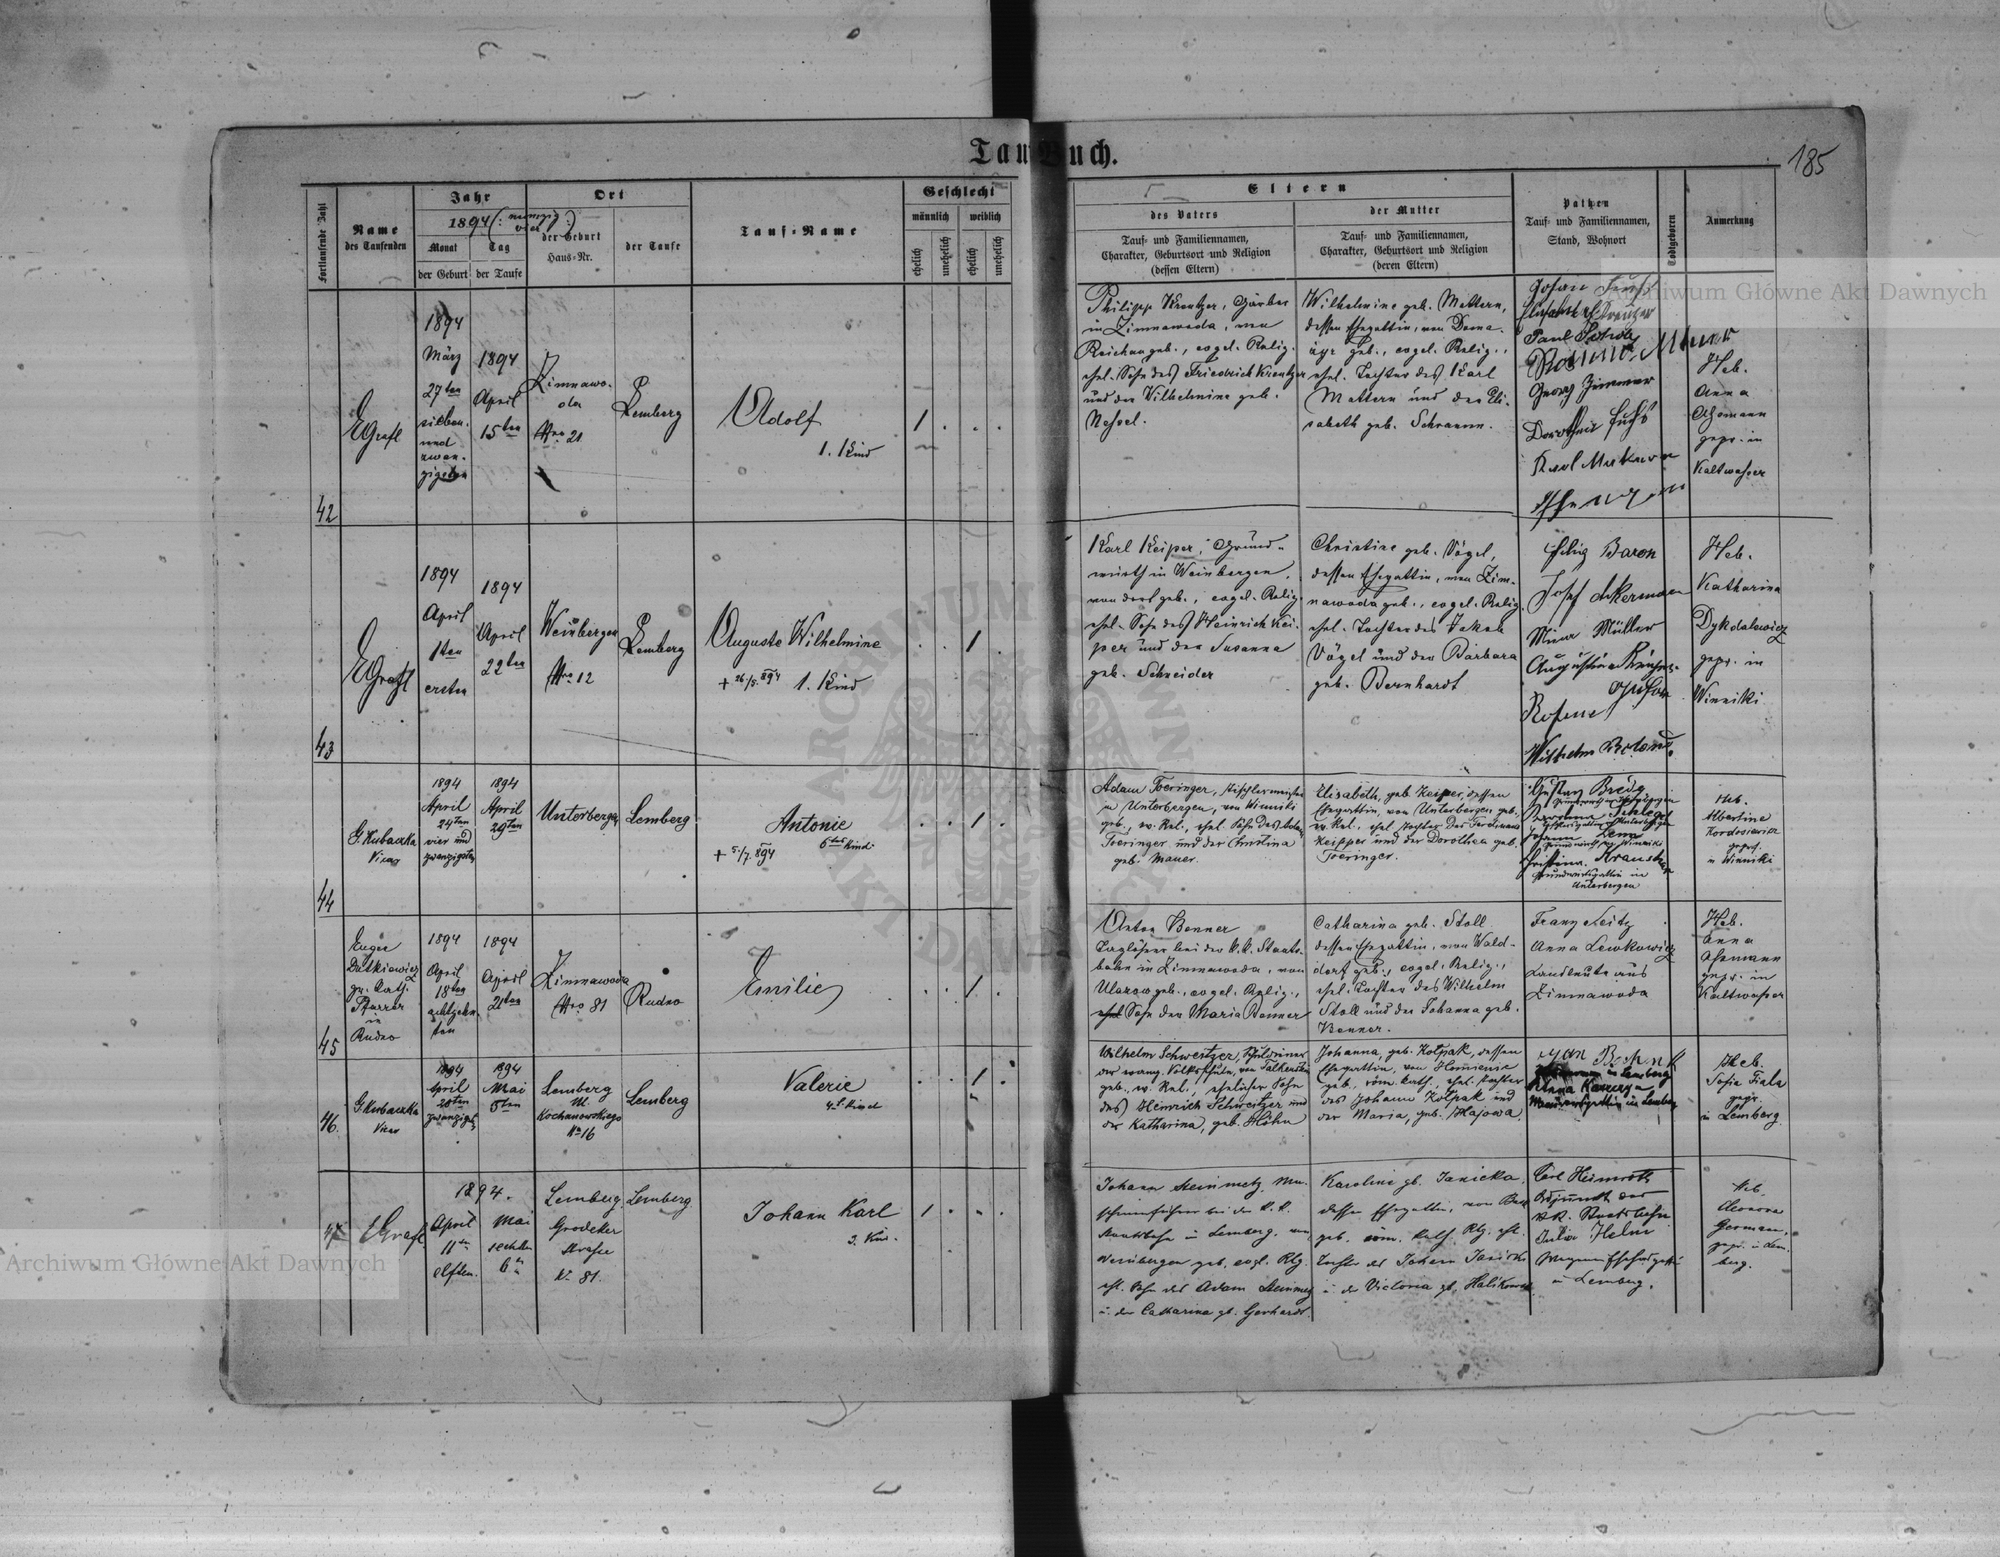 TaufBuch.
185
Fortlaufende Zahl
Name
des Taufenden
Jahr
1894 (: neunzig
vier :)
Monat
Tag
der Geburt
der Taufe
Ort
der Geburt
Haus-Nr.
der Taufe
Tauf-Name
Geschlecht
männlich
weiblich
ehelich
unehelich
ehelich
unehelich
Eltern
des Vaters
Tauf- und Familiennamen,
Charakter, Geburtsort und Religion
(dessen Eltern)
der Mutter
Tauf- und Familiennamen,
Charakter, Geburtsort und Religion
(deren Eltern)
Pathen
Tauf- und Familiennamen,
Stand, Wohnort
Todtgeboren
Anmerkung
42
EGrafl
1894
März
27ten
sieben-
und
zwan-
zigsten
1894
April
15ten
Zimnawo-
da
Nro 21
Lemberg
Adolf
1. Kind
1
Philipp Kreutzer, Gärber
in Zimnawoda, von
Reichau geb., evgel. Relig.
ehel. Sohn des Friedrich Kreutzer
und der Wilhelmine geb.
Nessel.
Wilhelmine geb. Mattern,
dessen Ehegattin, von Dorna-
geb., evgel. Relig.,
ehel. Tochter des Karl
Mattern und der Eli-
sabeth geb. Schramm.
Johan Fuchs
Elisabeth Kreutzer
Paul
Georg Zimmer
Dorothea Fuchs
Karl
Heb.
Anna
Assmann
gepr. in
Kaltwasser
43
EGrafl
1894
April
1ten
ersten
1894
April
22ten
Weinbergen
Nro 12
Lemberg
Auguste Wilhelmine
+ 26/5. 894 1. Kind
1
Karl Keiper, Grund-
wirth in Weinbergen,
von dort geb., evgel. Relig.
ehel. Sohn des Heinrich Kei-
per und der Susanna
geb. Schneider
Christine geb. Vögel,
dessen Ehegattin, von Zim-
nawoda geb., evgel. Relig.
ehel. Tochter des Jakob
Vögel und der Barbara
geb. Bernhardt
Filip Baron
Josef Akermann
Mina Müller
Augustina
Wilhelm
Heb.
Katharina
Dykdalewicz
gepr. in
Winniki
44
G. Kubaczka
Vicar
1894
April
24ten
vier und
zwanzigsten
1894
April
29ten
Unterbergen
Lemberg
Antonie
6tes Kind
+ 5./7. 894
1
Adam Toeringer, Tischlermeister
in Unterbergen, von Winniki
geb., ev. Rel., ehel. Sohn des Adam
Toeringer und der Christina
geb. Mauer.
Elisabeth, geb. Keiper, dessen
Ehegattin, von Unterbergen, geb.,
ev. Rel., ehel. Tochter des Ferdinand
Keipper und der Dorothea geb.
Toeringer.
Gustav Bredy
Schlegel
Johann Lenz
Christina
Grundwirthsgattin in
Unterbergen
Heb.
Albertine
Kordosiewicz
gepr.
in Winniki
45
Eugen
Datkiewicz
gr. kath.
Pfarrer
in
Rudno
1894
April
18ten
achtzehn-
ten
1894
April
21ten
Zimnawoda
Nro 81
Rudno
Emilie
1
Anton Benner
bei der k.k. Staats-
bahn in Zimnawoda, von
Ulazow geb., evgel. Relig.,
ehel. Sohn der Maria Benner
Catharina geb. Stoll
dessen Ehegattin, von Wald-
dorf geb., evgel. Relig.,
ehel. Tochter des Wilhelm
Stoll und der Johanna geb.
Benner.
Franz Seitz
Anna Lewkowicz
Landleute aus
Zimnawoda
Heb.
Anna
Assmann
gepr. in
Kaltwasser
46.
G. Kubaczka
Vicar
1894
April
20ten
zwanzigsten
1894
Mai
5ten
Lemberg
ul.
Kochanowskiego
No 16
Lemberg
Valerie
4tes Kind
1
Wilhelm Schweitzer, Schuldiener
der evang. Volksschule, von Falkenstein
geb., ev. Rel., ehelicher Sohn
des Heinrich Schweitzer und
der Katharina, geb. Höhn
Johanna, geb. Kotpak, dessen
Ehegattin, von
geb., röm. kath., ehel. Tochter
des Johann Kotpak und
der Maria, geb. Hajowa
Jan
in Lemberg
in Lemberg
Heb.
Sofia Fiala
gepr.
in Lemberg
47
EGrafl
1894.
April
11ten
elften.
Mai
sechsten
6ten
Lemberg,
Grodeker
Strasse
No 81.
Lemberg
Johann Karl
2. Kind.
1
Johann Steinmetz, Ma-
schinenführer bei der k. k.
Staatsbahn in Lemberg, von
Weinbergen geb. evgl. Rlg.
ehl. Sohn des Adam Steinmetz
u. der Catharina gb. Gerhardt.
Karoline gb. Janicka,
dessen Ehegattin, von
geb. röm. kath. Rlg. ehl.
Tochter des Johann Janicki
u. der Victoria gb. Halikowska
Carl Heimroth
Adjunct der
k.k. Staatsbahn
Julia Helm
in Lemberg.
Heb.
Eleonora
German,
gepr. in Lem-
berg.
Archiwum Główne Akt Dawnych
Archiwum Główne Akt Dawnych
ARCHIWUM GŁÓWNE AKT DAWNYCH